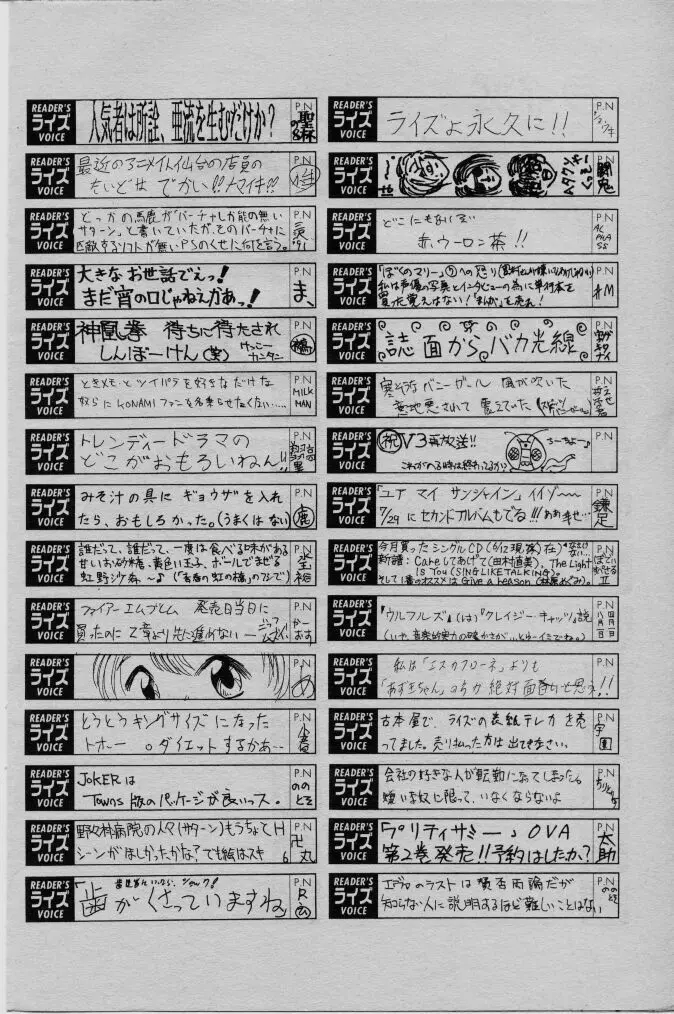 READER'S ライズ VOICE
人気者は所詮、亜流を生むだけか?
P.N
READER'S ライズ VOICE
最近のアニメイト仙台の店員の
P.N
READER'S ライズ VOICE
どっかの馬鹿が「バーチャしか能の無い
サターン」と書いていたが、そのバーチャに
匹敵するソフトが無いPSのくせに何を言う。'91
P.N
READER'S ライズ VOICE
大きなお世話でえっ!
まだ宵の口じゃねえかあっ!
P.N
ま、
READER'S ライズ VOICE
神凰拳 待ちに待たされ
しんぼーけん(笑)
P.N
READER'S ライズ VOICE
ときメモとツインパラを好きなだけな
奴らにKONAMIファンを名乗らせたくない……
P.N
MILK MAN
READER'S ライズ VOICE
トレンディードラマの
どこがおもろいねん!!
P.N
READER'S ライズ VOICE
みそ汁の具に ギョウザを入れ
たら、おもしろかった。(うまくはない)
P.N
鹿
READER'S ライズ VOICE
誰だって、誰だって、一度は食べる味がある
甘いお砂糖、黄色い玉子、ボールでまぜる
虹野沙希〜♪(「青春の虹の橋」のフシで)
P.N
READER'S ライズ VOICE
ファイアーエムブレム 発売日当日に
買ったのに2章より先に進めない
P.N
かーおす
READER'S ライズ VOICE
P.N
め
READER'S ライズ VOICE
とうとうキングサイズになった
トホー。ダイエットするかあ…
P.N
READER'S ライズ VOICE
JOKERは
Towns版のパッケージが良いっス。
P.N
ののとぞ
READER'S ライズ VOICE
野々村病院の人々(サターン)もうちょてH
シーンがほしかったかな?でも絵はスキ
P.N
卍丸
6
READER'S ライズ VOICE
「歯がくさっていますね」
P.N
R
READER'S ライズ VOICE
ライズよ永久に!!
P.N
READER'S ライズ VOICE
P.N
闘鬼
READER'S ライズ VOICE
どこにもないぞ
赤ウーロン茶!!
P.N
ALPHA SS
READER'S ライズ VOICE
私は声優の写真とインタビューの為に単行本を
買った覚えはない!「まんが」を売れ!
P.N
#M
READER'S ライズ VOICE
誌面からバカ光線
P.N
READER'S ライズ VOICE
寒そうなバニーガール 風が吹いた
意地悪されて 震えていた
P.N
READER'S ライズ VOICE
祝 V3再放送!!
これがのる時は終わってるカナ
P.N
READER'S ライズ VOICE
「ユア マイ サンシャイン」イイゾ〜〜
7/29にセカンドアルバムもでる!!! ああ幸せ…
P.N
鎌足
READER'S ライズ VOICE
今月買ったシングルCD(6/12現在)
新譜:Careしてあげて(田村直美)、The Light
Is You(SING LIKE TALKING)。
そして1番のオススメはGive a reason(林原めぐみ)。
P.N
READER'S ライズ VOICE
『ウルフルズ』(は)『クレイジーキャッツ』説
(いや、音楽的実力の確かさが…とゆーイミでね。)
P.N
READER'S ライズ VOICE
私は「エスカフローネ」よりも
「あずきちゃん」のちが絶対面白いと思え!!
P.N
READER'S ライズ VOICE
古本屋で、ライズの表紙テレカを売
ってました。売り払った方は出てきなさい。
P.N
READER'S ライズ VOICE
会社の好きな人が転勤になってしまった。
嫌いな奴に限って、いなくならないよ
P.N
READER'S ライズ VOICE
『プリティサミー』OVA
第2巻発売!!予約はしたか?
P.N
太助
READER'S ライズ VOICE
エヴァのラストは賛否両論だが
知らない人に説明するほど難しいことはない
P.N
ののとぞ